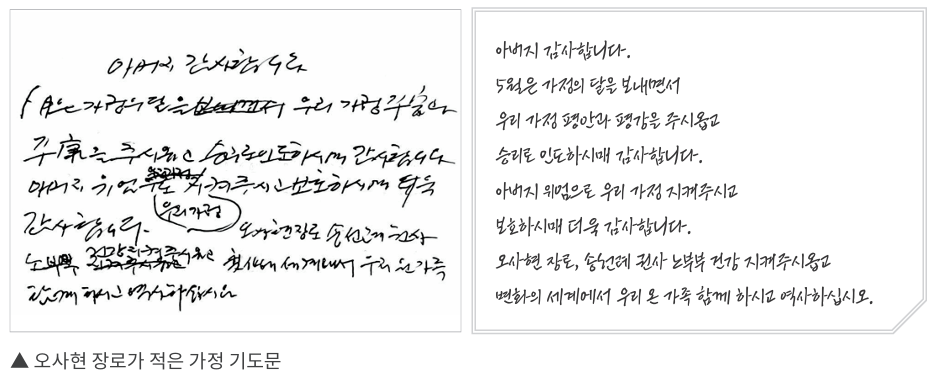 아버지 감사합니다
5월은 가정의 달을 보내면서 우리 가정 平安과
平康을 주시옵고 승리로 인도하시매 감사합니다
아버지 위엄으로 지켜주시고 보호하시매 더욱
우리가정
감사합니다. 오사현 장로 송선례 권사
노부부 건강 지켜주시옵고 변화의 세계에서 우리 온 가족
함께 하시고 역사하십시오
아버지 감사합니다.
5월은 가정의 달을 보내면서
우리 가정 평안과 평강을 주시옵고
승리로 인도하시매 감사합니다.
아버지 위엄으로 우리 가정 지켜주시고
보호하시매 더욱 감사합니다.
오사현 장로, 송선례 권사 노부부 건강 지켜주시옵고
변화의 세계에서 우리 온 가족 함께 하시고 역사하십시오.
▲ 오사현 장로가 적은 가정 기도문